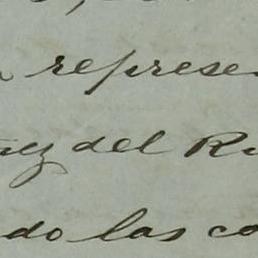 represen
ez del Ru
do las co